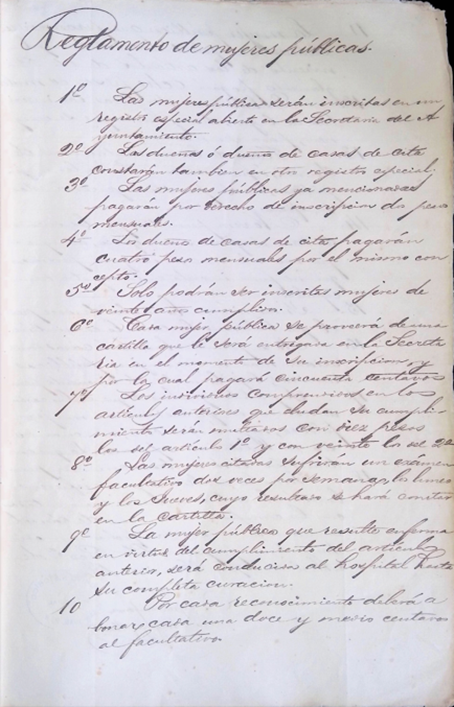 Reglamento de mujeres públicas.
1º Las mujeres públicas serán inscritas en un
registro especial abierto en la Secretaria del A
yuntamiento.
2º Las dueñas ó dueños de casas de cita
constarán tambien en otro registro especial.
3º Las mujeres públicas ya mencionadas
pagarán por derecho de inscripcion dos pesos
mensuales.
4º Los dueños de casas de cita pagarán
cuatro pesos mensuales por el mismo con
cepto.
5º Solo podrán ser inscritas mujeres de
veinte años cumplidos.
6º Cada mujer pública se proveerá de una
cartilla que le será entregada en la Secreta
ria en el momento de su inscripcion, y
por la cual pagará cincuenta centavos
7º Los individuos comprendidos en los
artículos anteriores que eludan su cumpli-
miento serán multados con diez pesos
los del artículo 1º y con veinte los del 2º
8º Las mujeres citadas sufrirán un exámen
facultativo dos veces por semana, los lunes
y los Jueves, cuyo resultado se hará constar
en la cartilla.
9º La mujer pública que resulte enferma
en virtud del cumplimiento del artículo
anterior, será conducida al hospital hasta
su completa curacion.
10 Por cada reconocimiento deberá a
bonar cada una doce y medio centavos
al facultativo